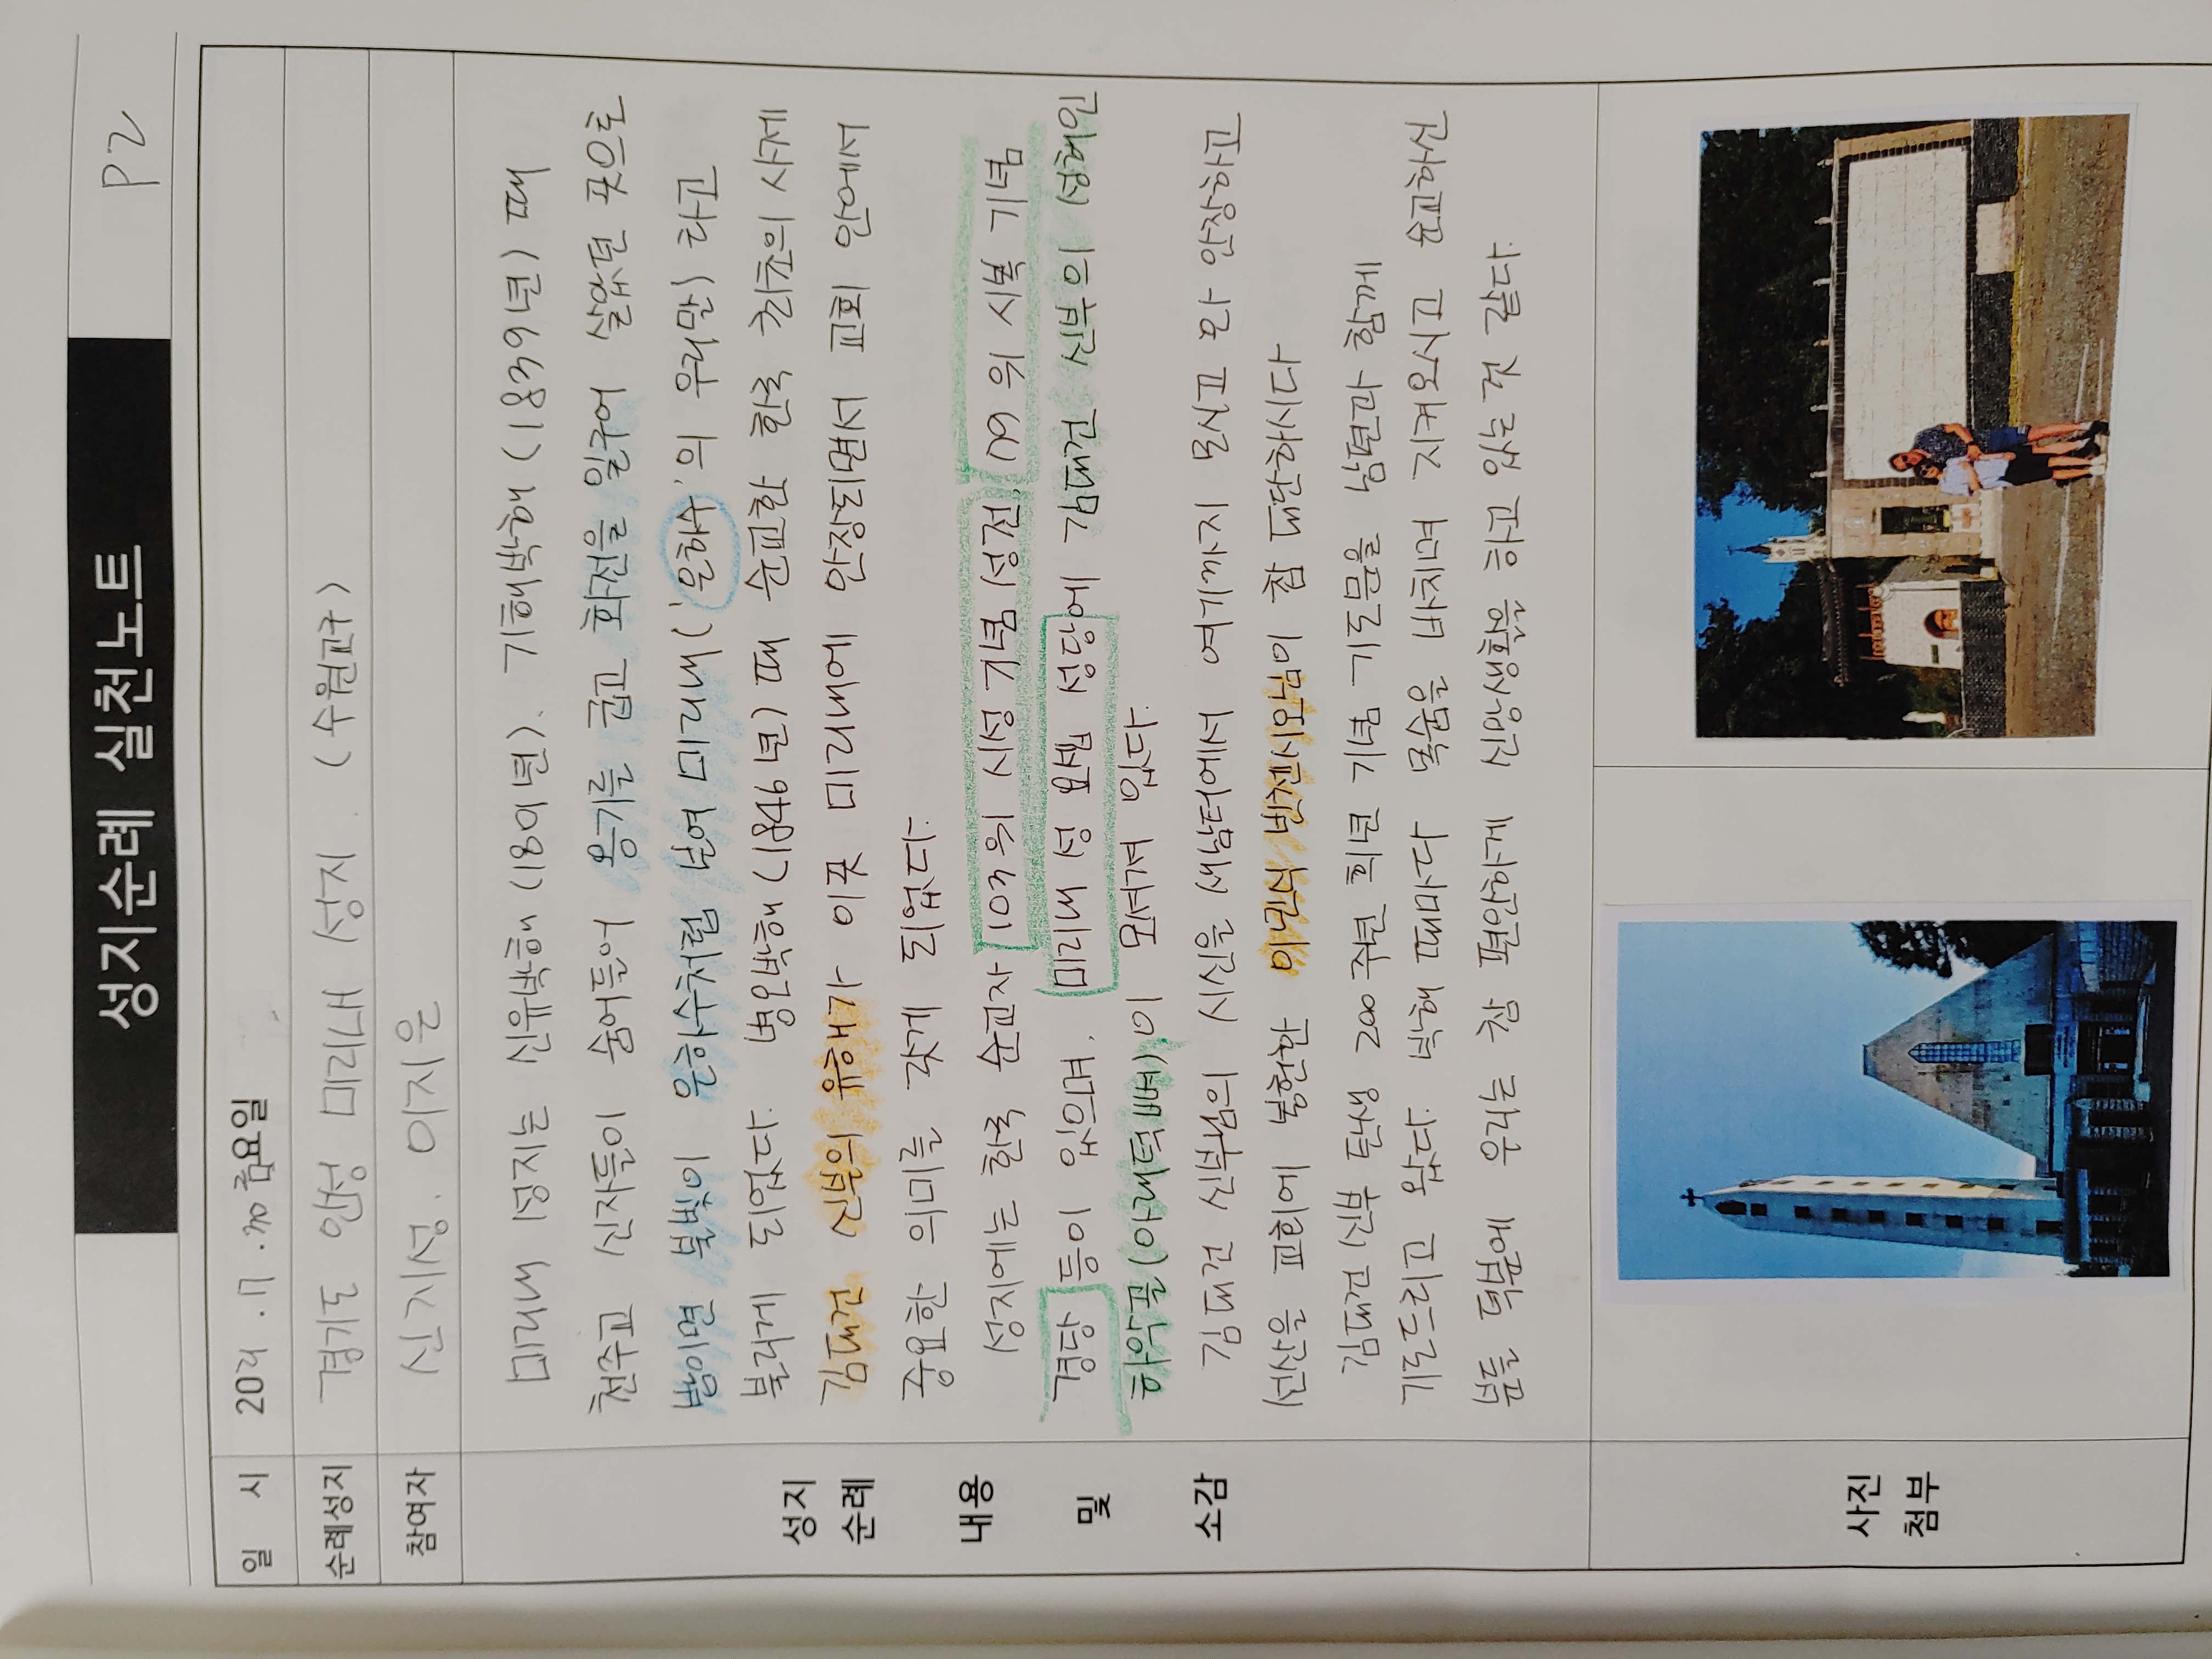 P2
성지순례 실천노트
일 시 2021. 7. 30 금요일
순례성지 경기도 안성 미리내 성지. (수원교구)
참여자 신기성. 이지은
성지 순례 내용 및 소감
미리내 성지는 신유박해 (1801년). 기해박해 (1839년) 때
천주교 신자들이 숨어들어 옹기를 굽고 화전을 일구어 살았던 곳으로
밤이면 불빛이 은하수처럼 보여 미리내 ('은하수'의 우리말) 라고
불리게 되었다. 병오박해 (1846년) 때 순교한 한국 최초의 사제
김대건 신부의 유해가 이곳 미리내에 안장되면서 교회 안에서
중요한 의미를 갖게 되었다.
성지에는 한국 순교자 103위 시성 기념 성전, 79위 시복 기념
경당 등이 있으며, 미리내 성 요셉 성당에 김대건 신부의 성해인
하악골 (아래턱뼈)이 모셔져 있다.
김대건 신부님의 시신을 새남터에서 여기까지 모시고 와 안장하고
선산을 교회에 봉헌한 이민식 빈첸시오님이 참 대단하시다
김대건 신부 탄생 200주년 희년 기념 기도문을 남편과 함께
기도드리고 왔다. 박해 때마다 목숨 바치며 지켜오시고 순교하신
분들 덕분에 우리는 참 편안하게 신앙생활하는 것은 생각도 든다.
사진 첨부